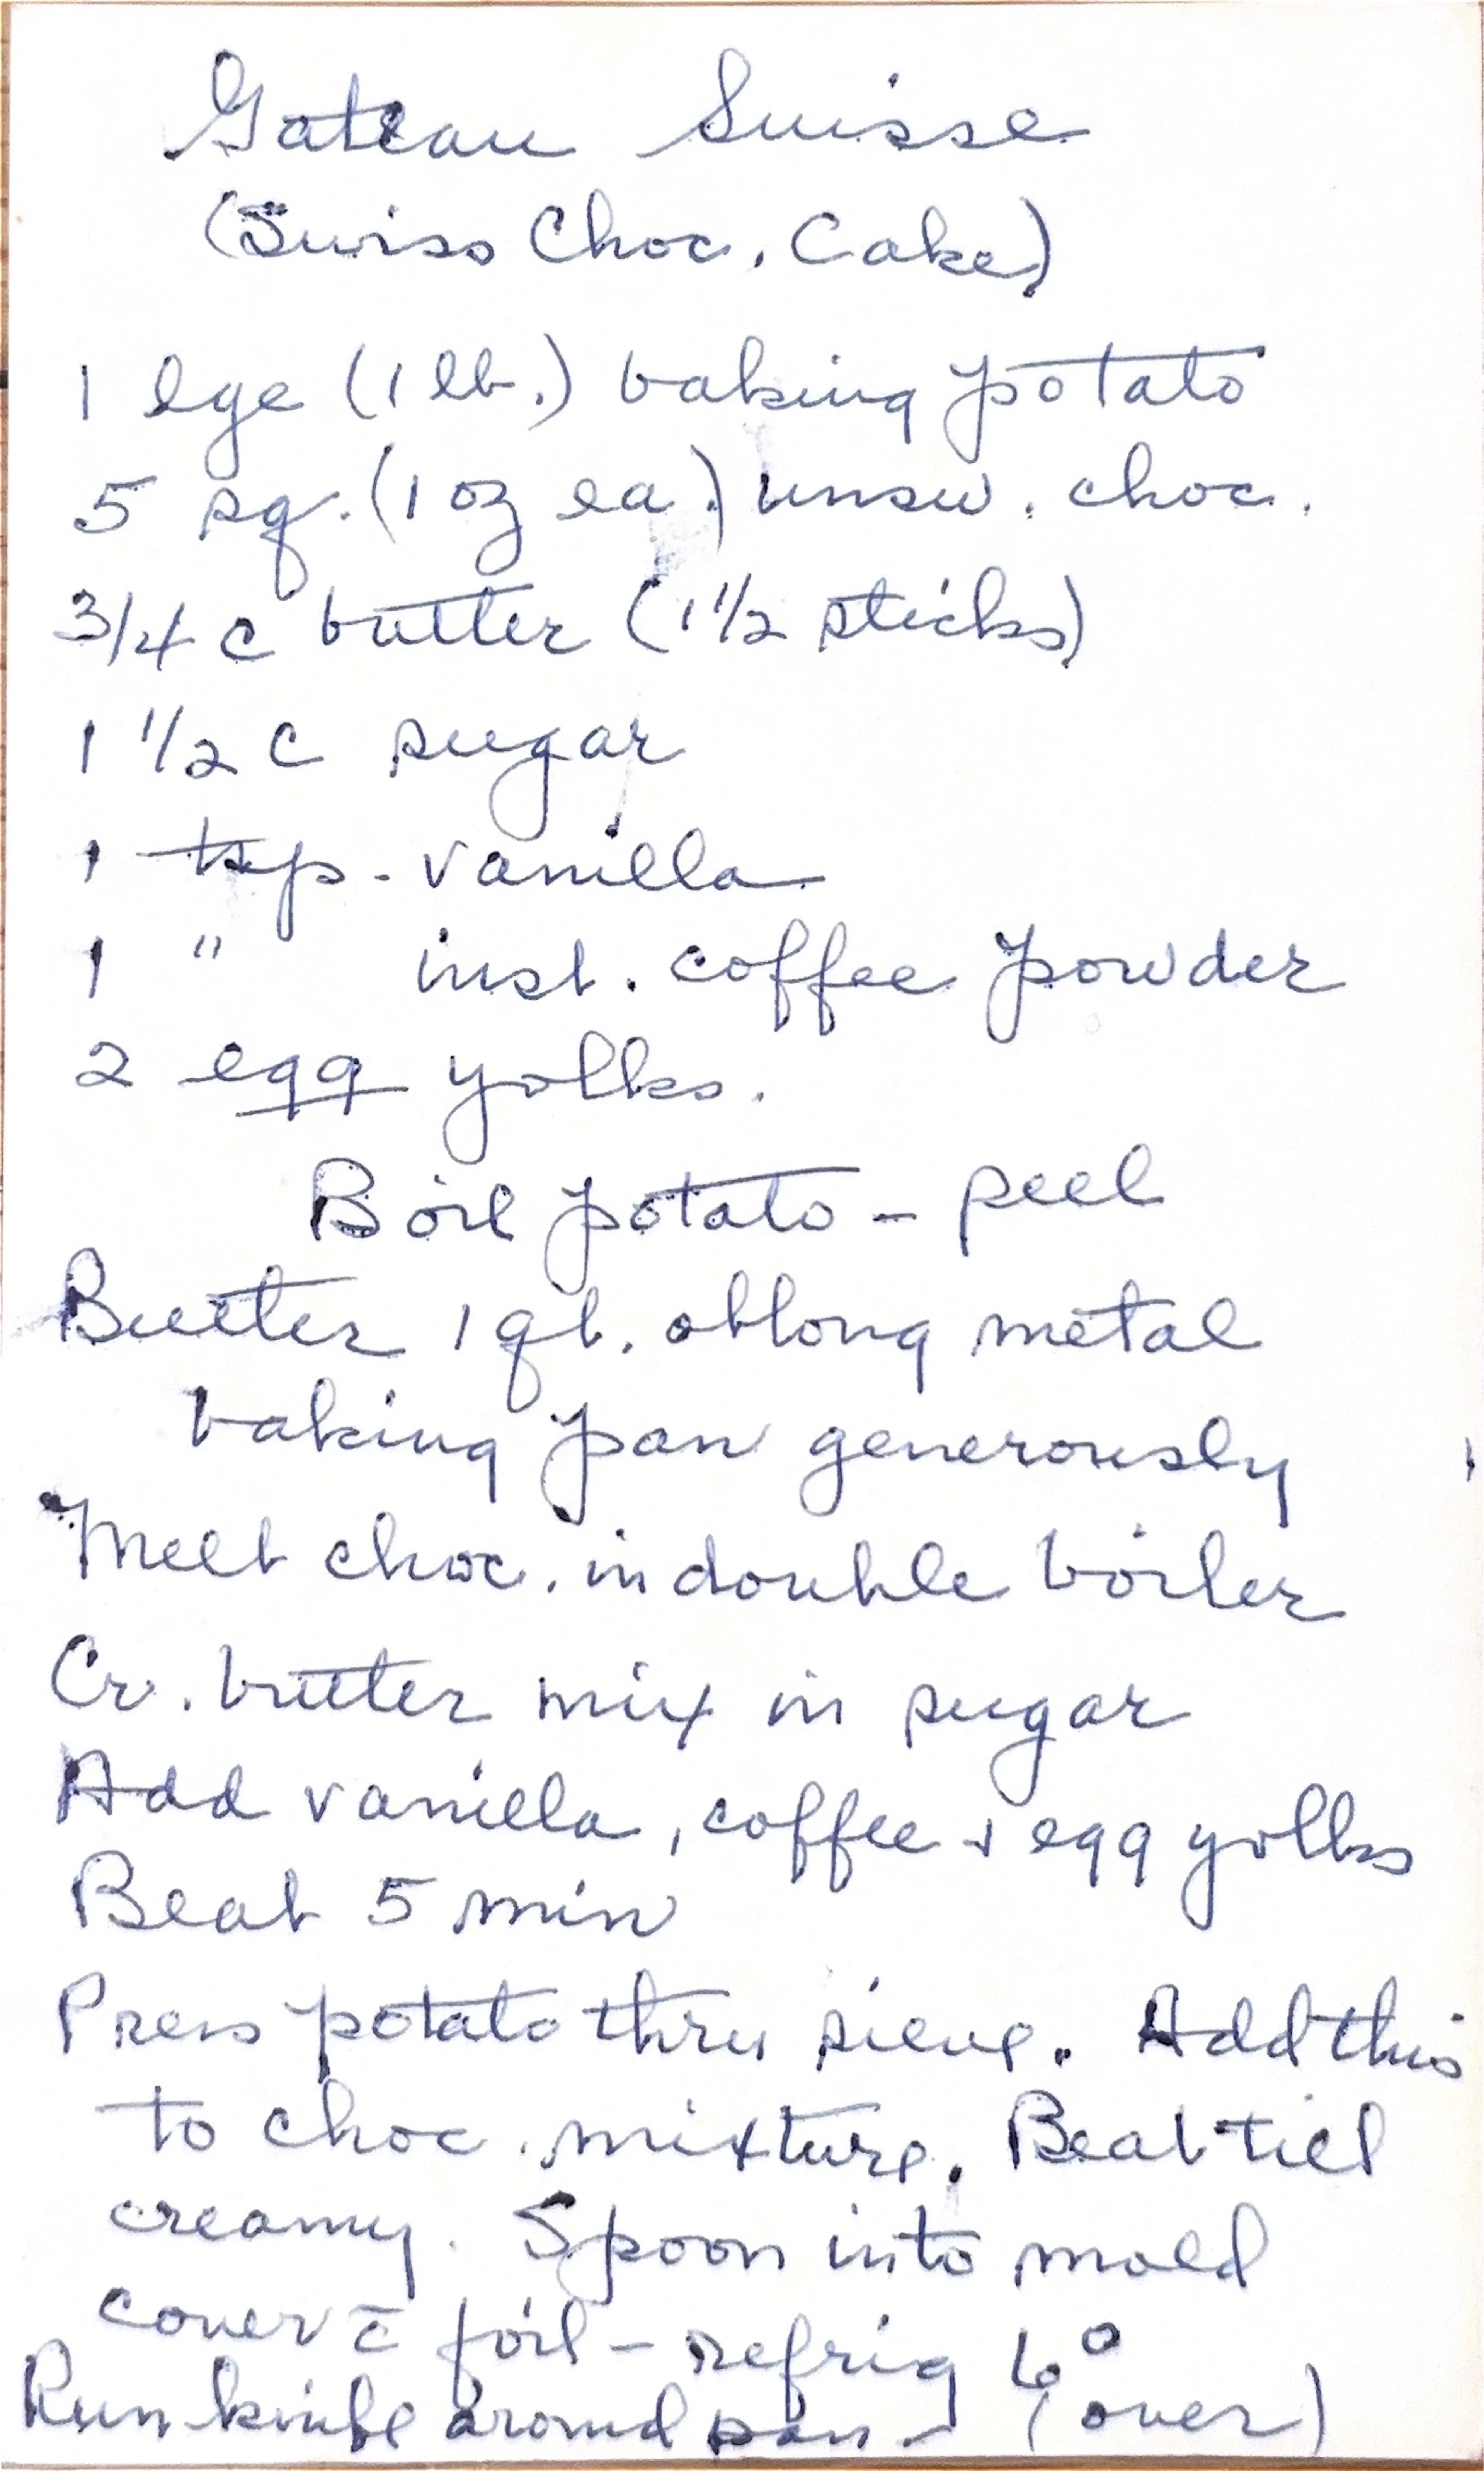 Gateau Suisse
(Swiss Choc. Cake)
1 lge (1 lb.) baking potato
5 sq. (1 oz ea.) unsw. choc.
3/4 c butter (1 1/2 sticks)
1 1/2 c sugar
1 tsp. vanilla
1 " inst. coffee powder
2 egg yolks.
Boil potato - peel
Butter 1 qt. oblong metal
baking pan generously
Melt choc. in double boiler
Cr. butter mix in sugar
Add vanilla, coffee + egg yolks
Beat 5 min
Press potato thru sieve. Add this
to choc. mixture. Beat till
creamy. Spoon into mold
cover c̄ foil - refrig 6°
Run knife around pan - (over)